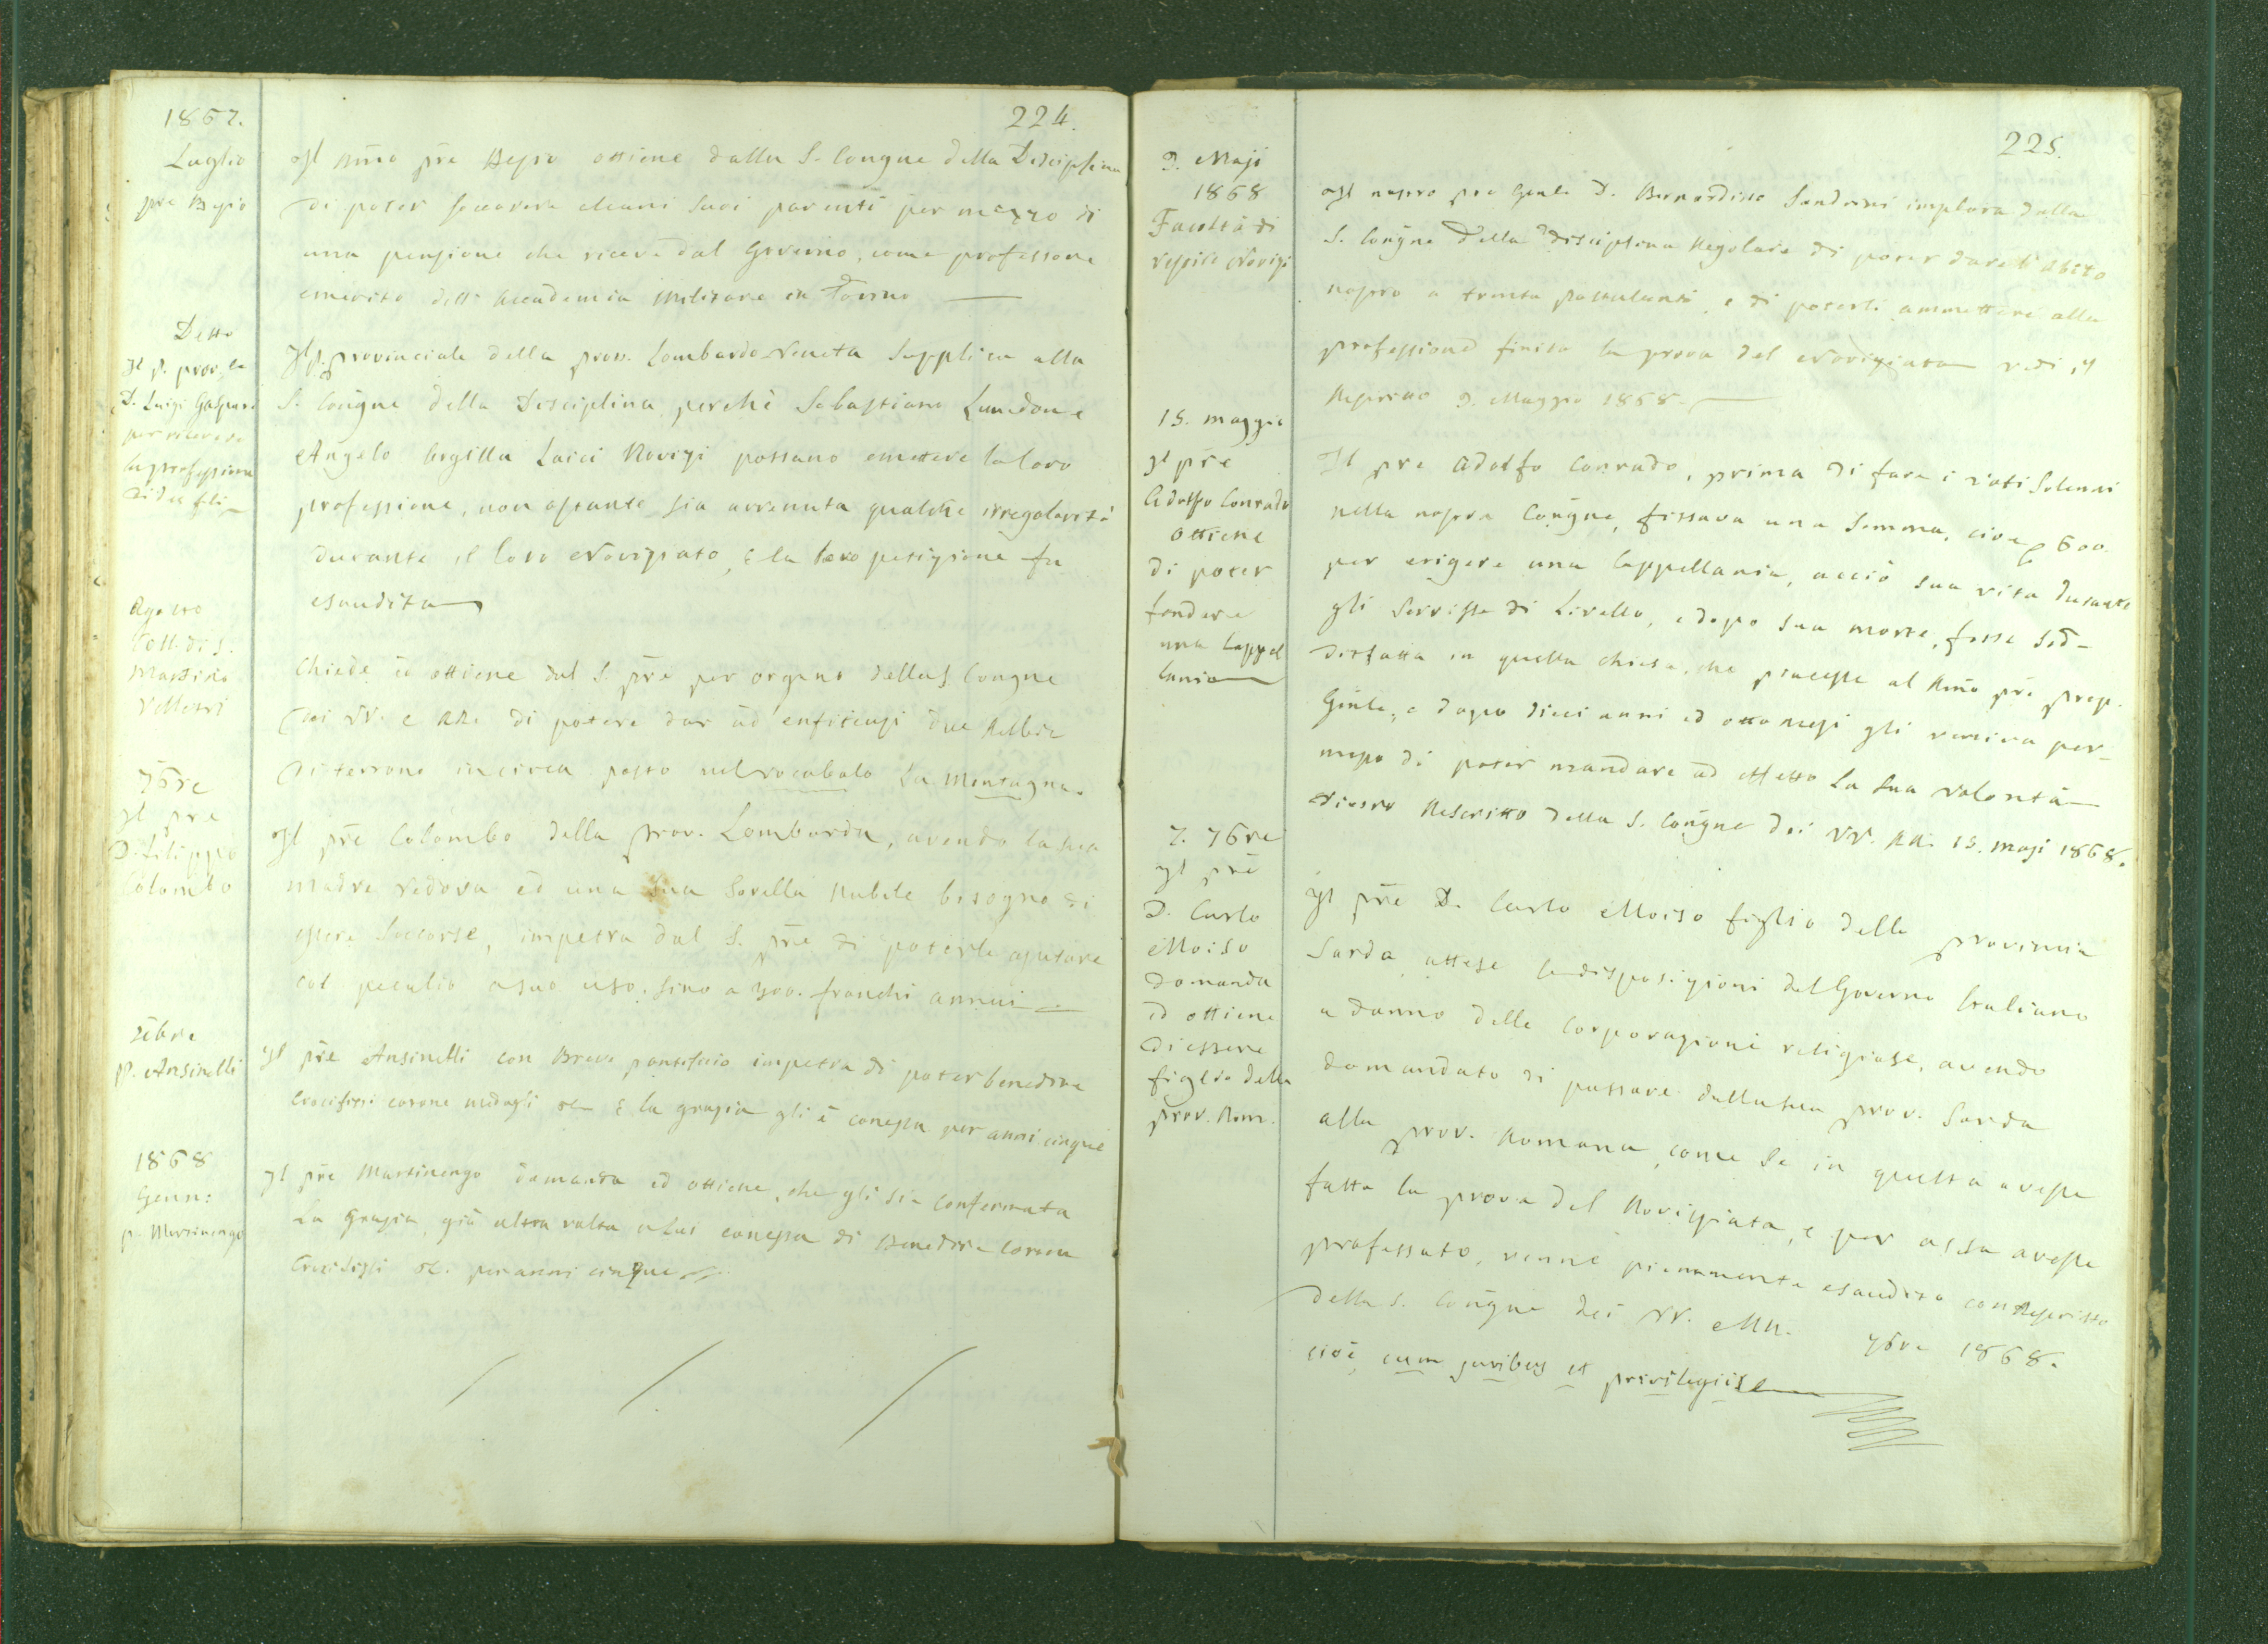 1867.
224.
Luglio
pre Besio
Il Rmo pre Besio ottiene dalla S. Congne della Disciplina
di poter soccorrere alcuni suoi parenti per mezzo di
una pensione che riceve dal Governo, come professore
emerito dell' Accademia Militare in Torino
Detto
Il p. prov.le
D. Luigi Gaspari
per ricevere
la professione
di due fili
Il p. provinciale della prov. Lombardo-Veneta supplica alla
S. Congne della Disciplina, perchè Sebastiano Lunedon e
Angelo Argilla Laici Novizi possano emettere la loro
professione, non ostante sia avvenuta qualche irregolarità
durante il loro Noviziato, e la loro petizione fu
esaudita
Agosto
Coll. di S.
Martino
Velletri
Chiede ed ottiene dal S. pre per organo della S. Congne
dei VV. e RR. di potere dar ad enfiteusi due Rubbia
di terreno incirca posto nel vocabolo La Montagna.
7bre
Il pre
D. Filippo
Colombo
Il pre Colombo della prov. Lombarda, avendo la sua
madre vedova ed una sua sorella nubile bisogno di
essere soccorse, impetra dal S. pre di poterle ajutare
col peculio a suo uso, sino a 400. franchi annui
Xbre
p. Ansinelli
Il pre Ansinelli con Breve pontificio impetra di poter benedire
Crocifissi corone medagli &c e la grazia gli è concessa per anni cinque
1868
Genn:
p. Martinengo
Il pre Martinengo domanda ed ottiene, che gli sia confermata
La Grazia, già altra volta a lui concessa di Benedire Corone
Crocifissi &c. per anni cinque
225.
9. Maji
1868
Facoltà di
vestire Novizi
Il nostro pre Gnle D. Bernardino Sandrini implora dalla
S. Congne della Disciplina Regolare di poter dare l' Abito
nostro a trenta postulanti, e di poterli ammettere alla
professione finita la prova del Noviziato vedi, il
Rescritto 9. Maggio 1868.
15. maggio
Il pre
Adolfo Conrado
ottiene
di poter
fondare
una Cappel
lania
Il pre Adolfo Conrado, prima di fare i voti Solenni
nella nostra Congne, fissava una Somma, cioè 600.
per erigere una Cappellania, acciò sua vita durante
gli servisse di Livello, e dopo sua morte, fosse sod-
disfatta in quella chiesa, che piacesse al Rmo pre prep.
Gnle, e dopo dieci anni ed otto mesi gli veniva per-
messo di poter mandare ad effetto la sua volontà
dietro Rescritto della S. Congne dei VV. RR. 15. Maji 1868.
7. 7bre
Il pre
D. Carlo
Moiso
domanda
ed ottiene
di essere
figlio della
prov. Rom.
Il pre D. Carlo Moiso figlio della provincia
Sarda, attese le disposizioni del Governo Italiano
a danno delle Corporazioni religiose, avendo
domandato di passare dalla sua prov. Sarda
alla prov. Romana, come se in questa avesse
fatto la prova del Noviziato, e per essa avesse
professato, venne pienamente esaudito con Rescritto
della S. Congne dei VV. e RR. 7bre 1868.
cioè, cum juribus et privilegiis